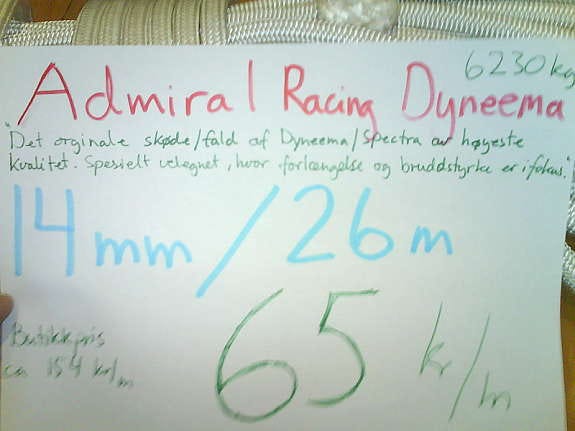 Admiral Racing Dyneema
6230 kg
"Det orginale skøde/fald af Dyneema/Spectra av høyeste
kvalitet. Spesielt velegnet, hvor forlængelse og bruddstyrke er i fokus."
14 mm / 26 m
65 kr/m
Butikkpris
ca 154 kr/m